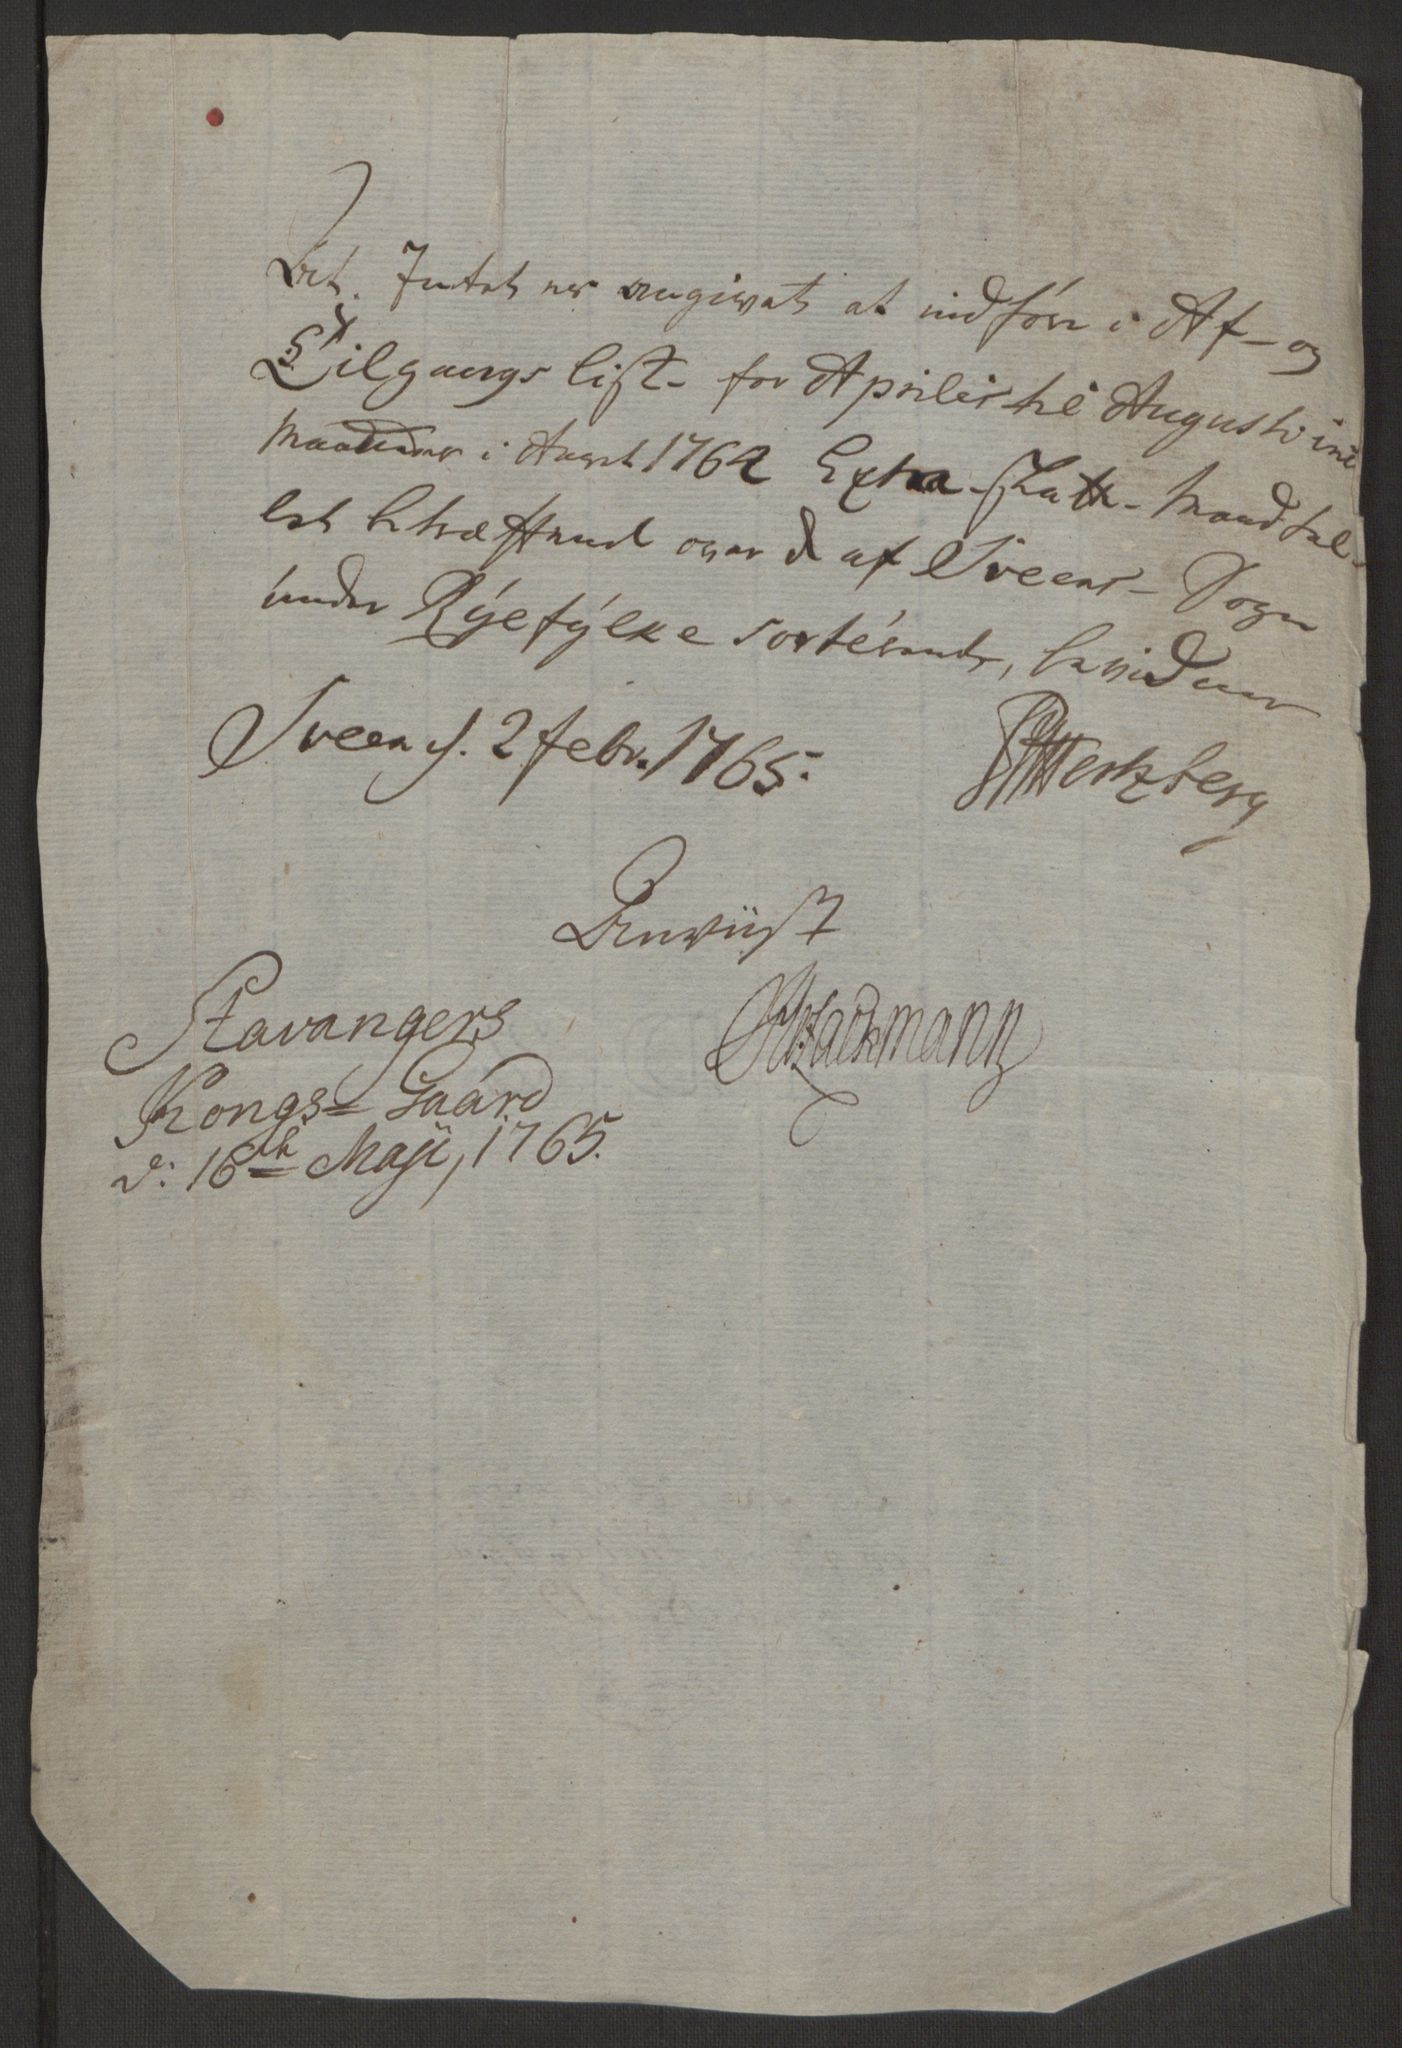 At Intet er angivet at indföre i Af- og
Tilgangs Liste for Aprilis til Augusti incl
Maaneder i Aaret 1764 Extra-Skatte-Mandtal-
let betræffende over d af Sveens-Sogn
under Ryefylke sorterende, bevidner
Sveen d. 2 febr. 1765.
Hertzberg
Anviist
Stavangers
Kongs-Gaard
d: 16de Maji, 1765.